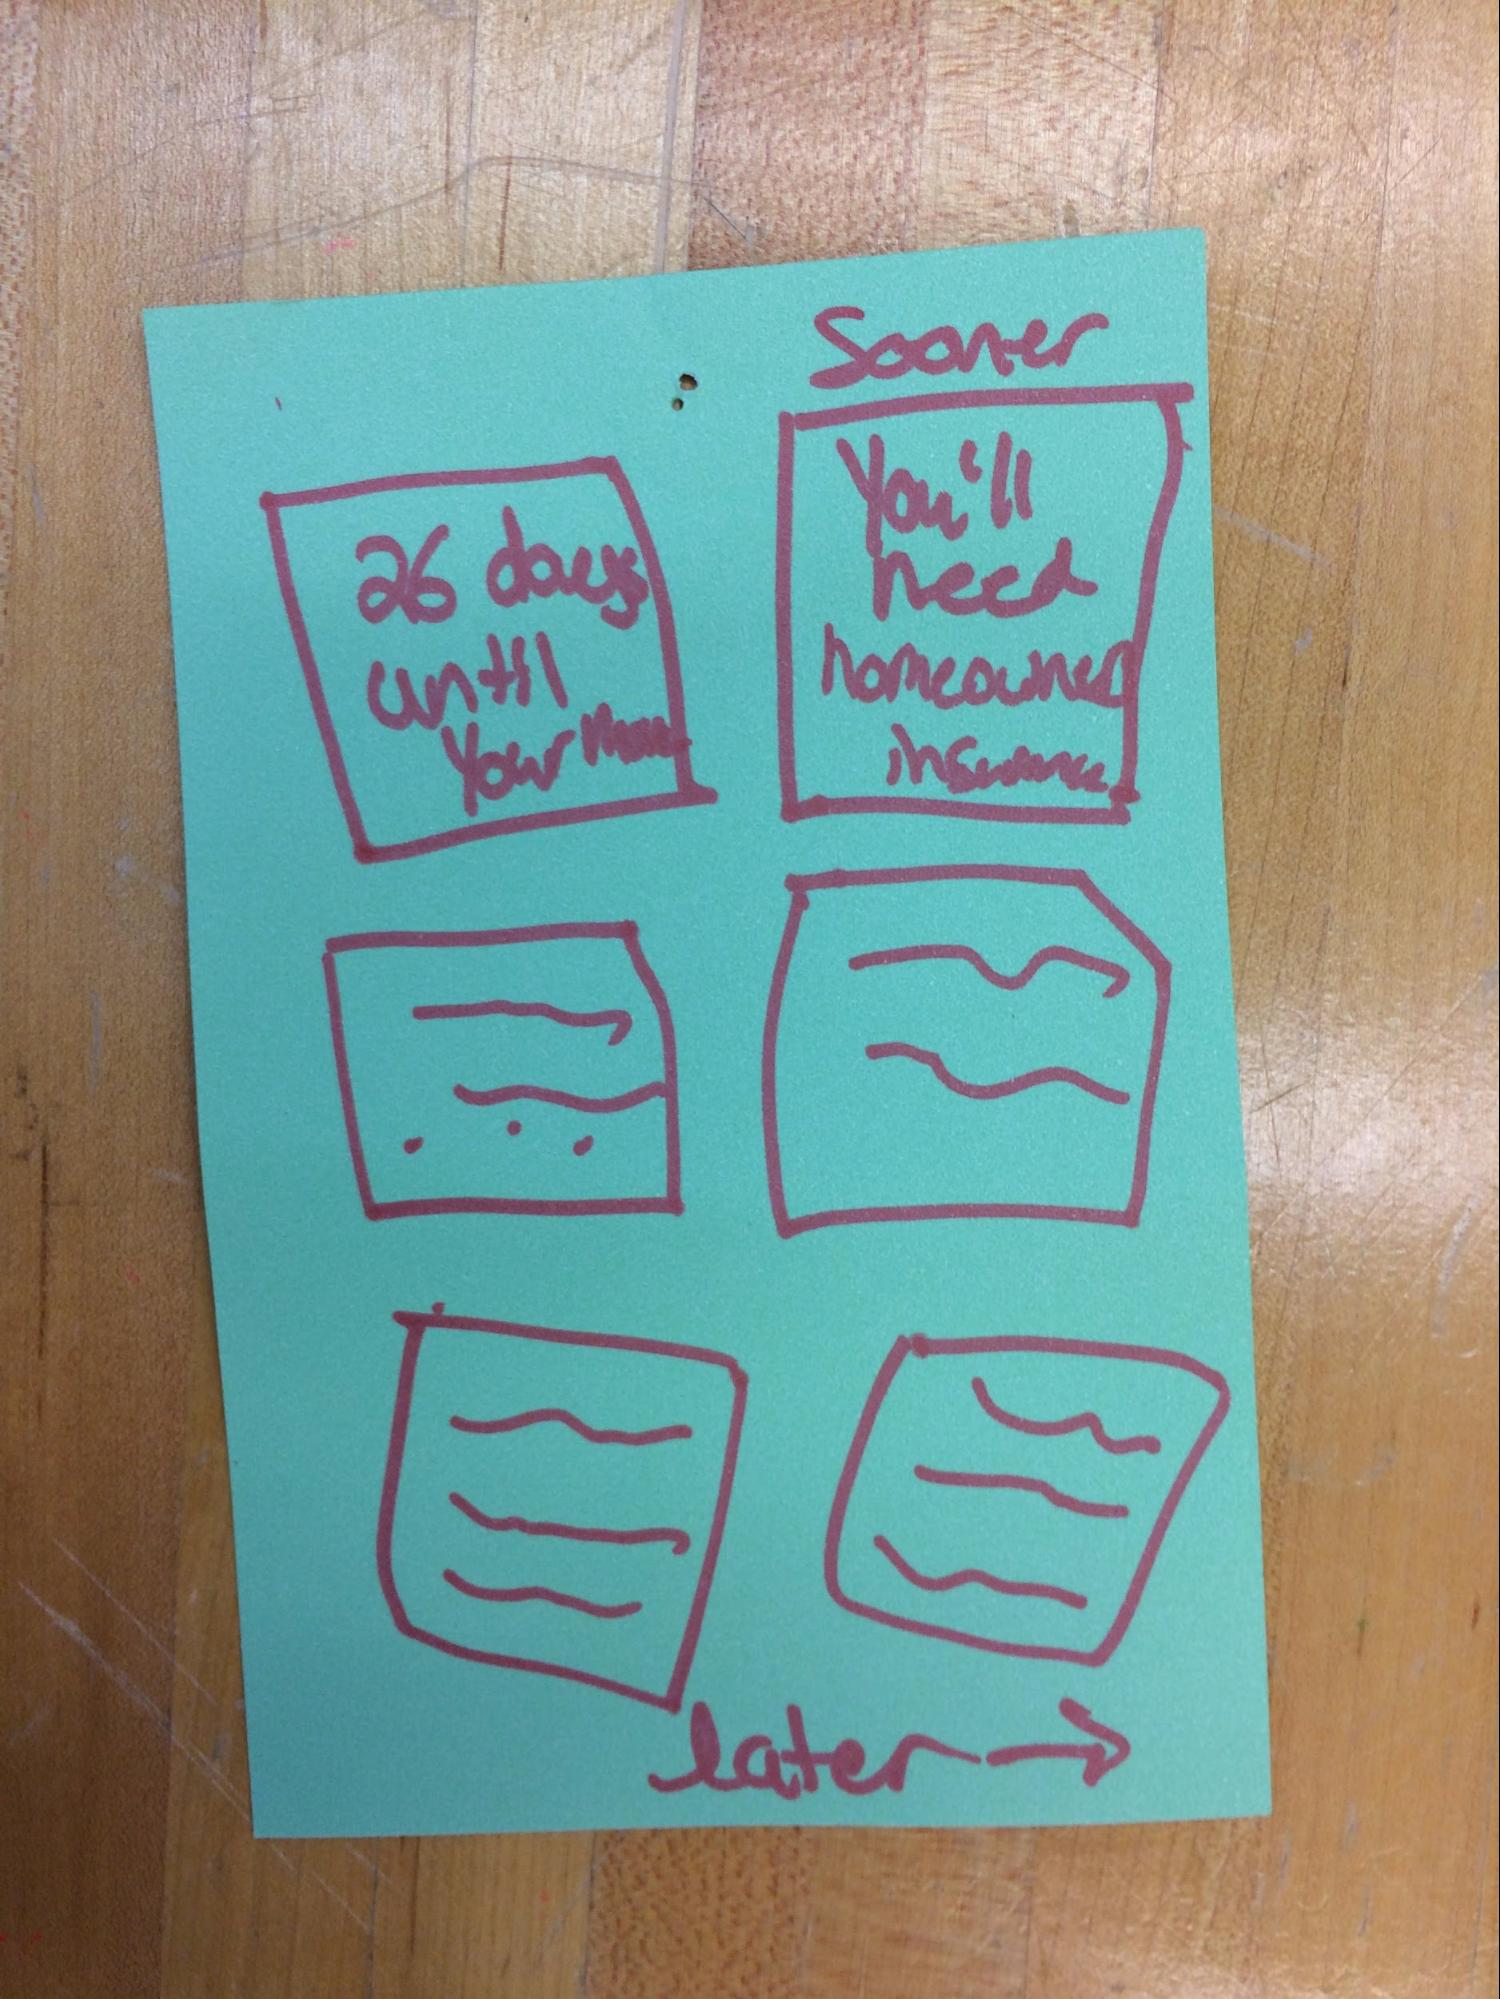 Sooner
26 days
until
your
You'll
need
homeowner
insurance
later →